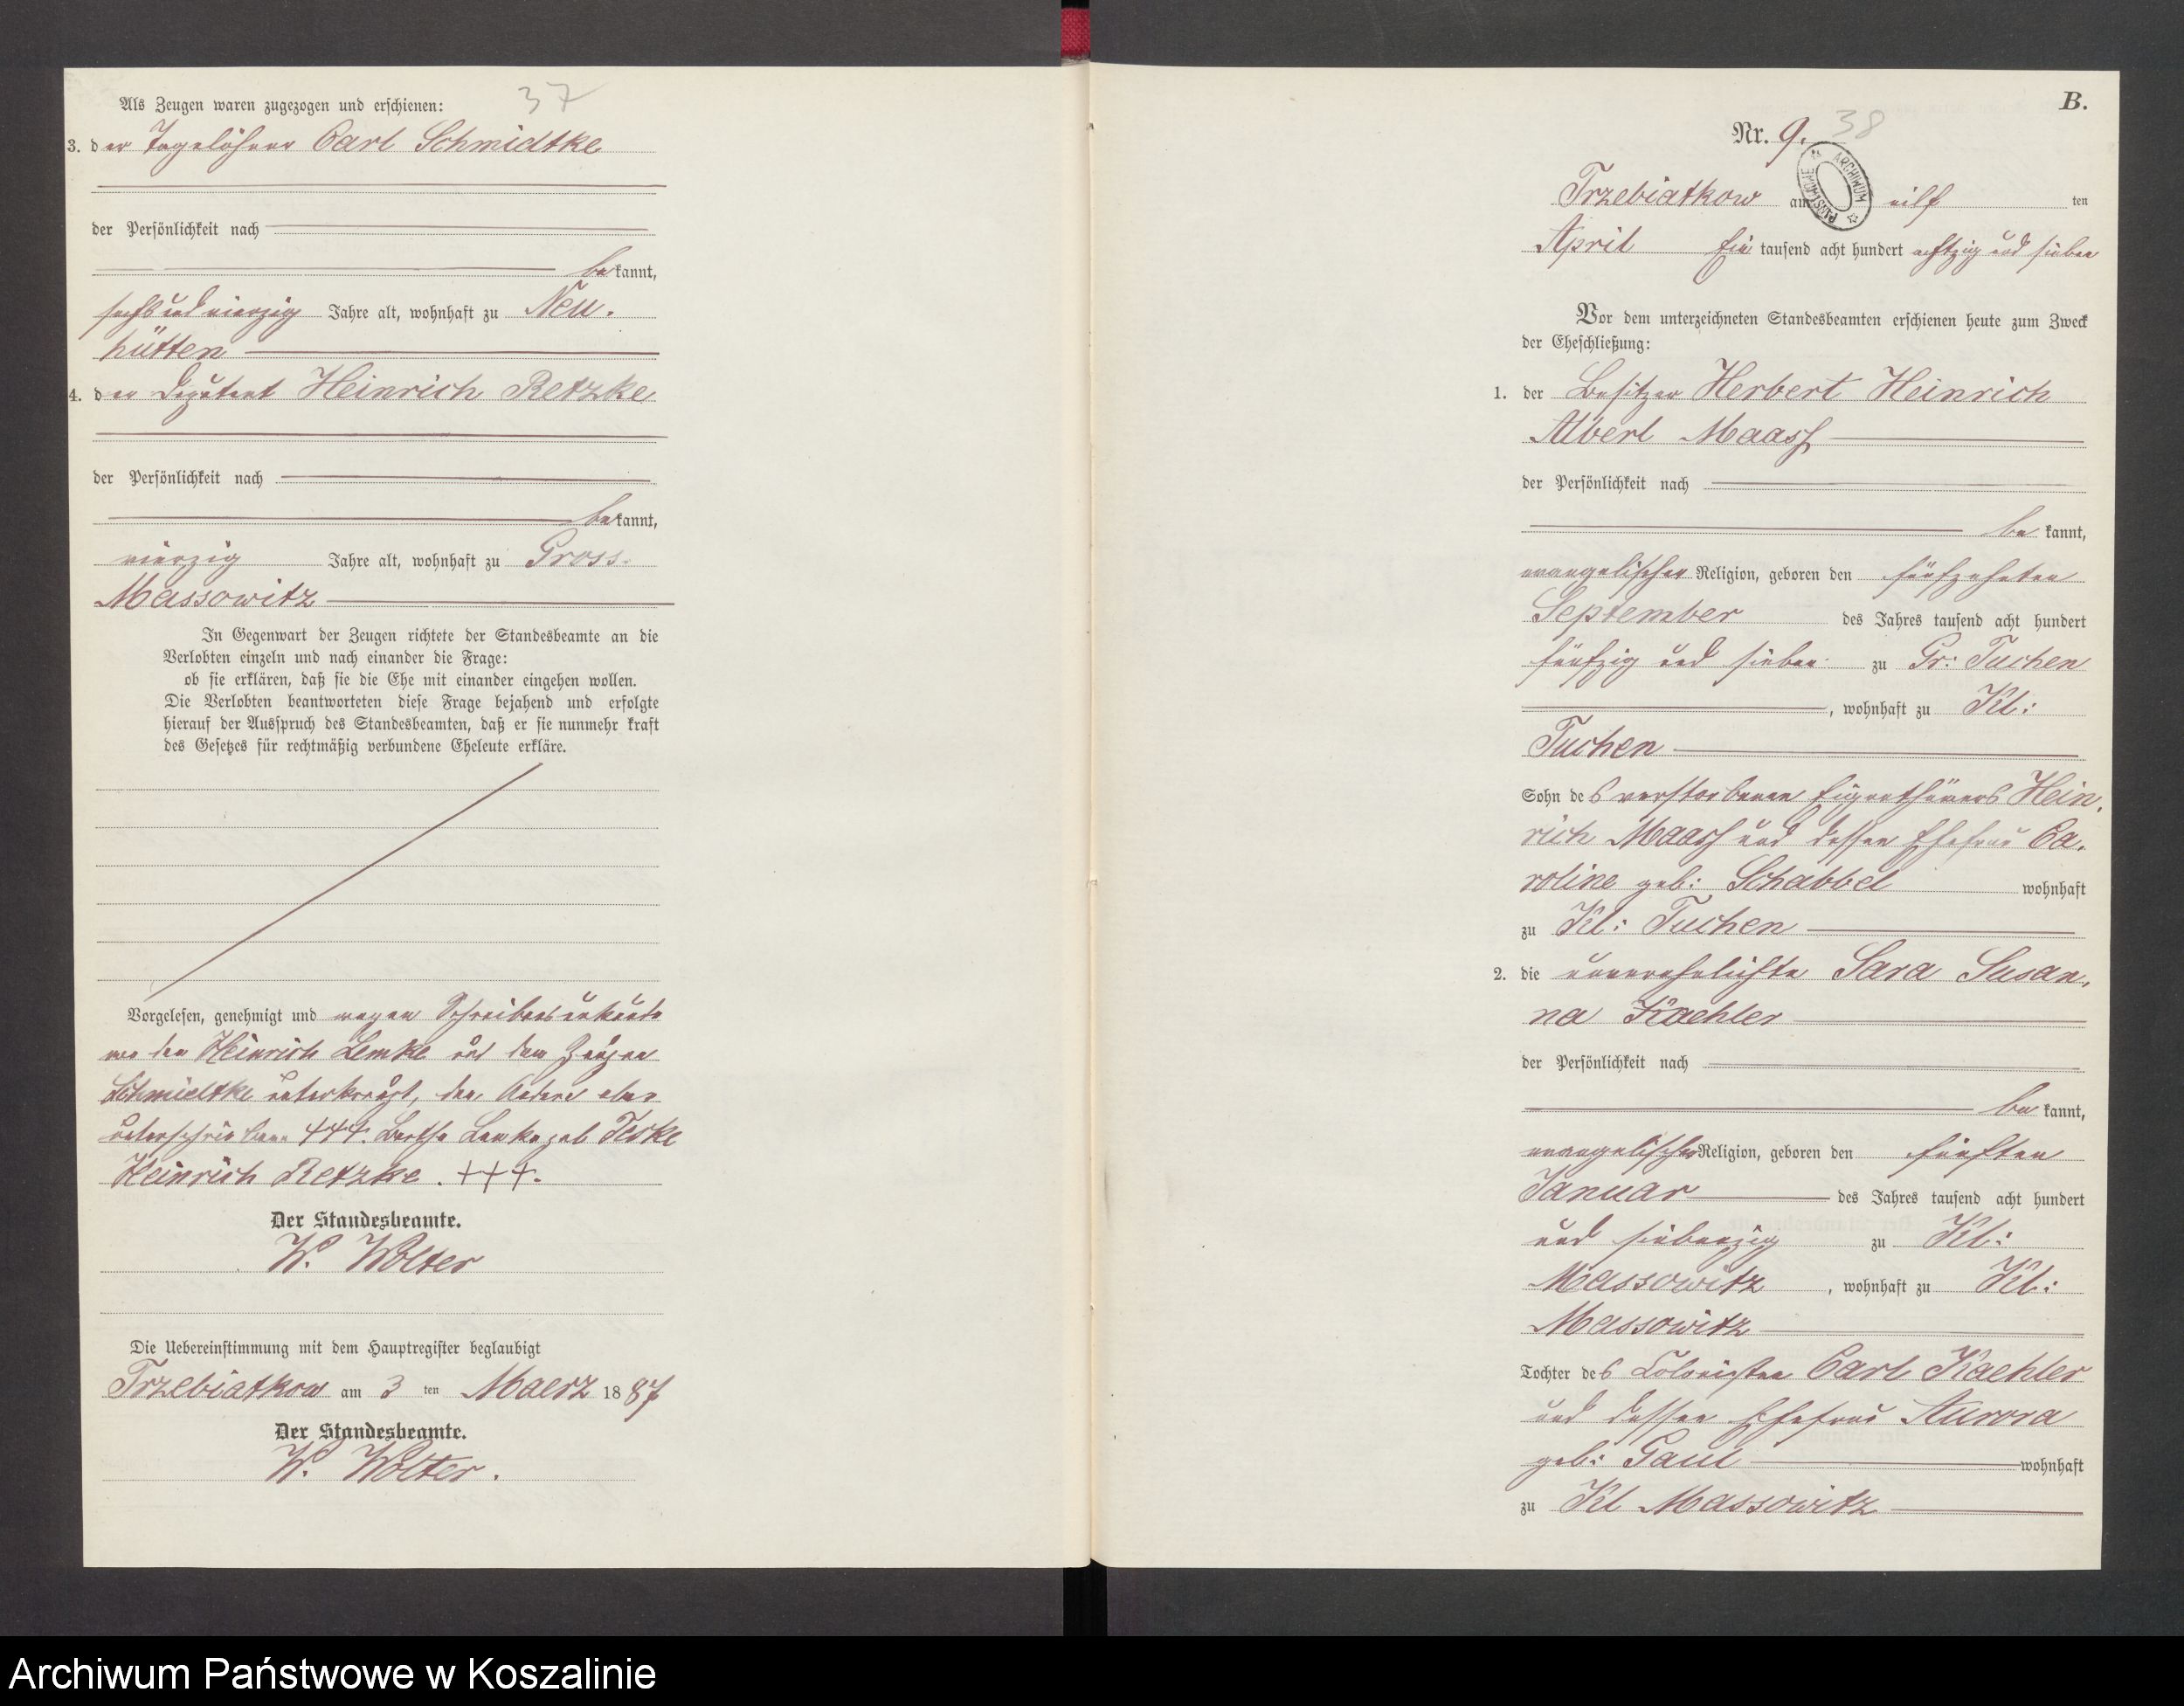 37
Als Zeugen waren zugezogen und erschienen:
3. der Tagelöhner Carl Schmidtke
der Persönlichkeit nach
bekannt,
sechsundvierzig Jahre alt, wohnhaft zu Neu-
hütten
4. der Deputant Heinrich Retzke
der Persönlichkeit nach
bekannt,
vierzig Jahre alt, wohnhaft zu Gross-
Massowitz
In Gegenwart der Zeugen richtete der Standesbeamte an die
Verlobten einzeln und nach einander die Frage:
ob sie erklären, daß sie die Ehe mit einander eingehen wollen.
Die Verlobten beantworteten diese Frage bejahend und erfolgte
hierauf der Ausspruch des Standesbeamten, daß er sie nunmehr kraft
des Gesetzes für rechtmäßig verbundene Eheleute erkläre.
Vorgelesen, genehmigt und wegen Schreibensunkunde
von den Heinrich Lemke und dem Zeugen
Schmidtke unterkreuzt, den Andern aber
unterschrieben +++. Bertha Lemke geb Teske
Heinrich Retzke . +++.
Der Standesbeamte.
W. Wolter
Die Uebereinstimmung mit dem Hauptregister beglaubigt
Trzebiatkow am 3 ten Maerz 1887
Der Standesbeamte.
W. Wolter.
B.
Nr. 9. 38
ARCHIWUM PAŃSTWOWE
Trzebiatkow am eilf ten
April Ein tausend acht hundert achtzig und sieben
Vor dem unterzeichneten Standesbeamten erschienen heute zum Zweck
der Eheschließung:
1. der Besitzer Herbert Heinrich
Albert Maass
der Persönlichkeit nach
be kannt,
evangelischer Religion, geboren den fünfzehnten
September des Jahres tausend acht hundert
fünfzig und sieben zu Gr: Tuchen
, wohnhaft zu Kl:
Tuchen
Sohn des verstorbenen Eigenthümers Hein-
rich Maass und dessen Ehefrau Ca-
roline geb: Schabbel wohnhaft
zu Kl: Tuchen
2. die unverehelichte Sara Susan-
na Kaehler
der Persönlichkeit nach
be kannt,
evangelischer Religion, geboren den fünften
Januar des Jahres tausend acht hundert
und siebenzig zu Kl:
Massowitz , wohnhaft zu Kl:
Massowitz
Tochter des Colonisten Carl Kaehler
und dessen Ehefrau Aurora
geb: Gaul wohnhaft
zu Kl Massowitz
Archiwum Państwowe w Koszalinie